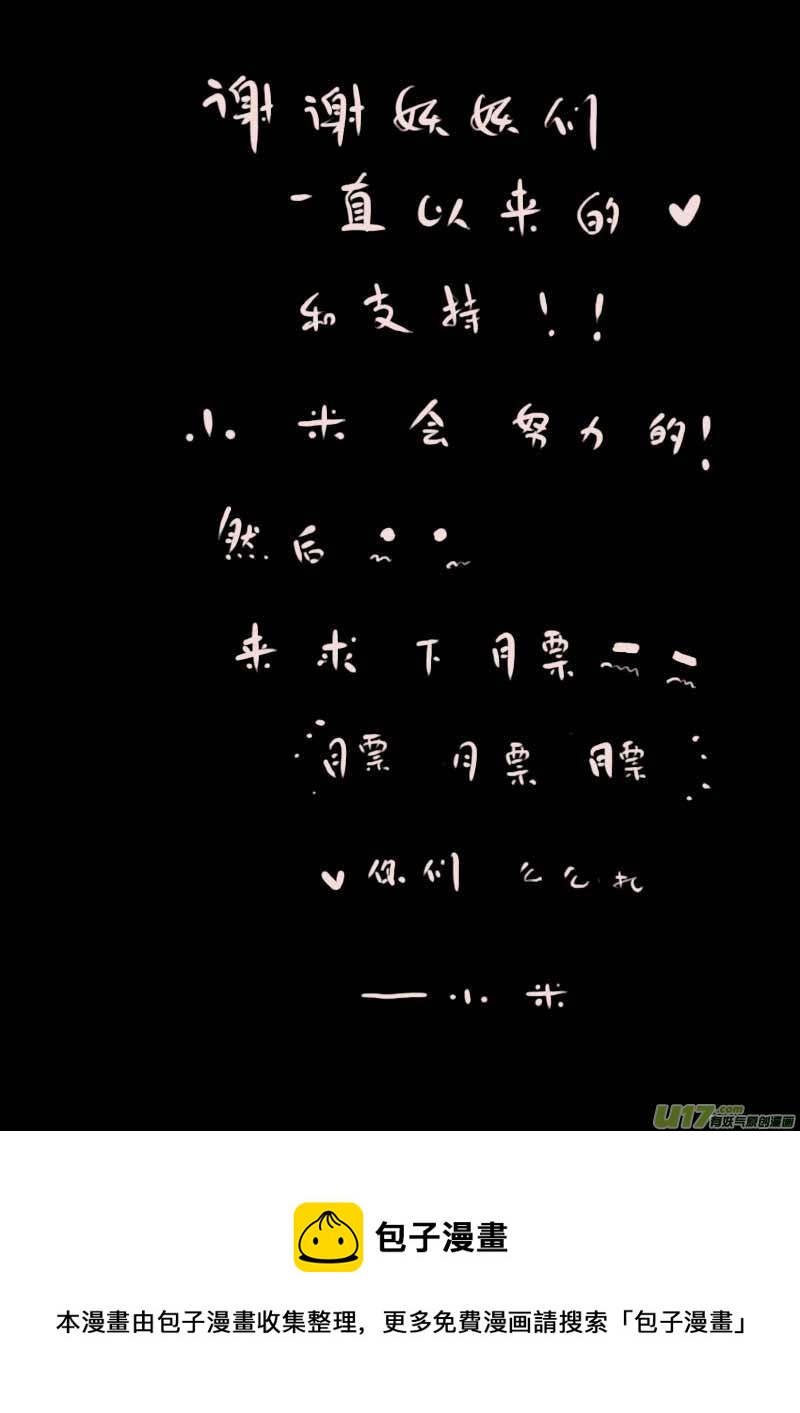 谢谢妖妖们
一直以来的♥
和支持！！
小米会努力的！
然后
来求下月票
月票 月票 月票
♥你们 么么扎
——小米
U17.com
有妖气原创漫画
包子漫畫
本漫畫由包子漫畫收集整理，更多免費漫画請搜索「包子漫畫」